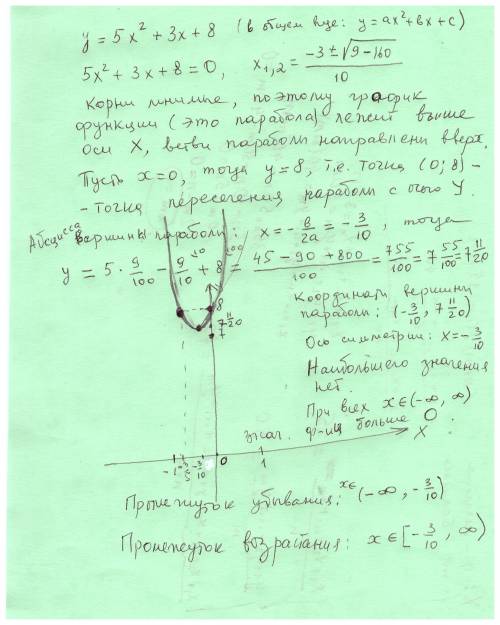 y = 5x² + 3x + 8 (в общем виде: y = ax² + вx + c)
5x² + 3x + 8 = 0, x₁,₂ = (-3 ± √(9 - 160)) / 10
Корни мнимые, поэтому график
функции (это парабола) лежит выше
оси X, ветви параболы направлены вверх.
Пусть x = 0, тогда y = 8, т.е. точка (0; 8) -
- точка пересечения параболы с осью Y.
Абсцисса вершины параболы: x = - в/2a = - 3/10, тогда
y = 5 · 9/100 - 9/10 + 8 = (45 - 90 + 800)/100 = 755/100 = 7 55/100 = 7 11/20
10 100
Координаты вершины
параболы: (-3/10, 7 11/20)
Ось симметрии: x = - 3/10
Наибольшего значения
нет.
При всех x ∈ (-∞, ∞)
знач. ф-ии больше 0.
8
7 11/20
7
-1 -3/5 -3/10 0 1 X
Промежуток убывания: x ∈ (-∞, -3/10)
Промежуток возрастания: x ∈ [-3/10, ∞)